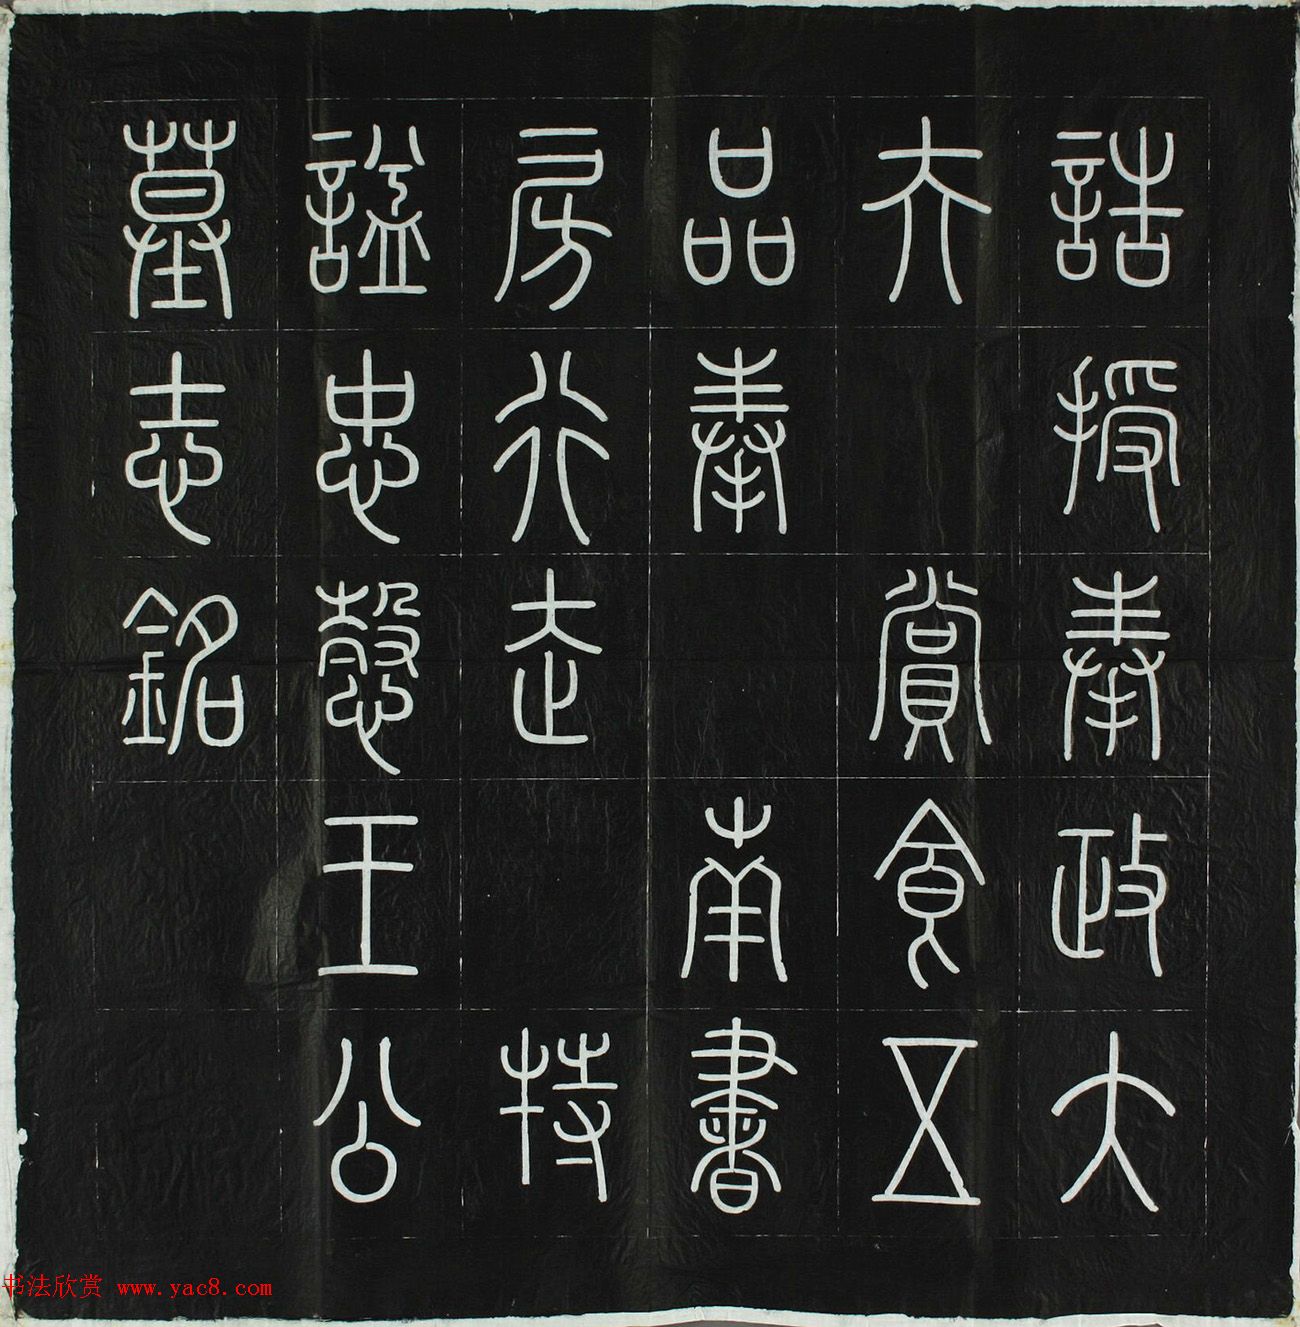 誥授奉政大
夫 賞食五
品奉 南書
房行走 特
諡忠愨王公
墓志銘
书法欣赏 www.yac8.com